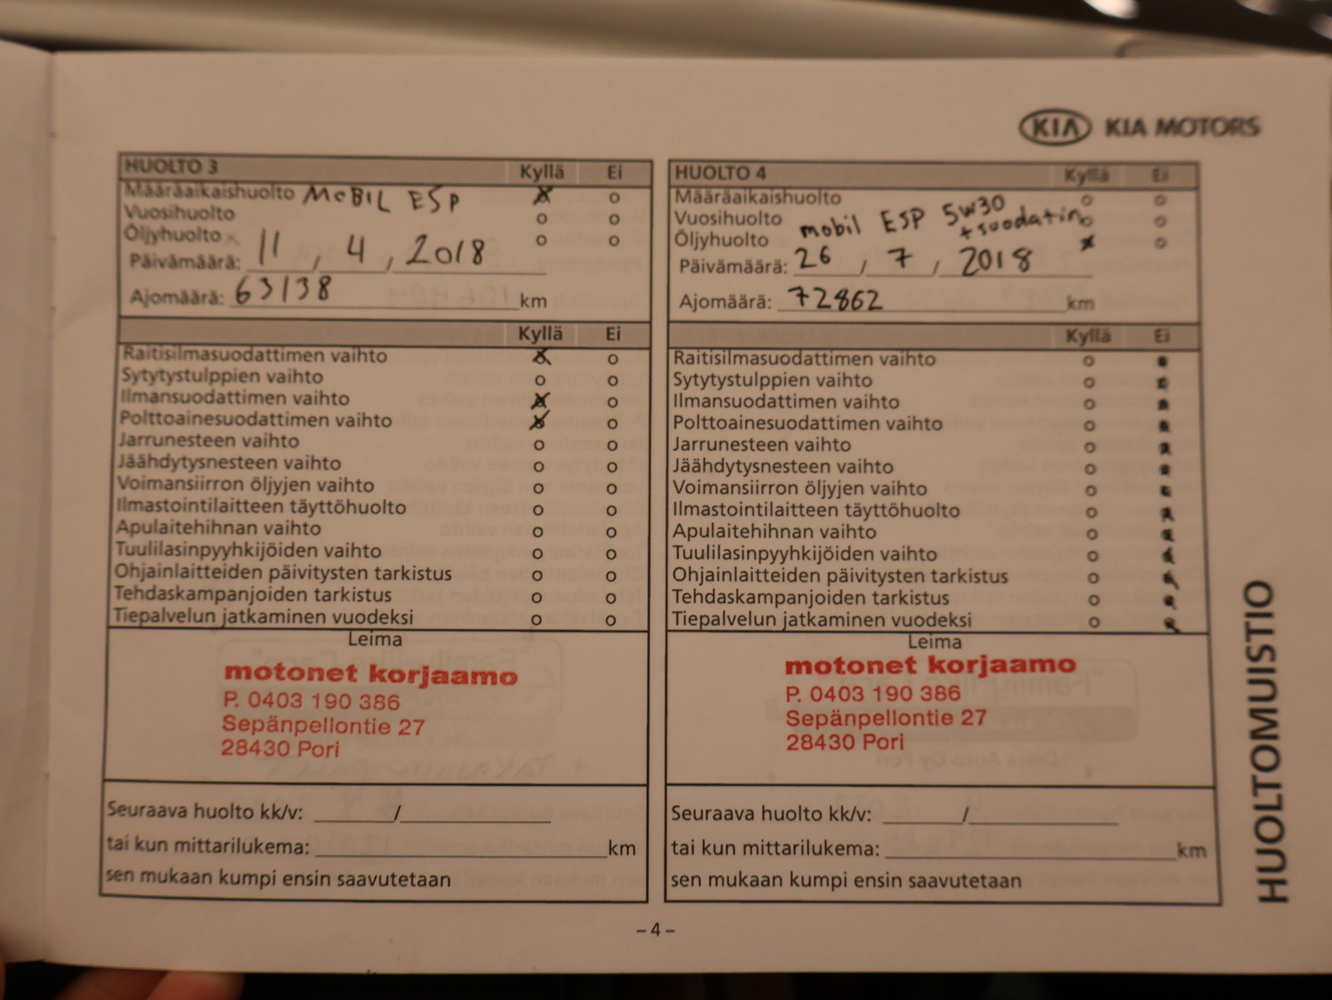 KIA KIA MOTORS
HUOLTO 3 Kyllä Ei
Määräaikaishuolto MOBIL ESP
Vuosihuolto
Öljyhuolto
Päivämäärä: 11, 4, 2018
Ajomäärä: 63138 km
Kyllä Ei
Raitisilmasuodattimen vaihto
Sytytystulppien vaihto
Ilmansuodattimen vaihto
Polttoainesuodattimen vaihto
Jarrunesteen vaihto
Jäähdytysnesteen vaihto
Voimansiirron öljyjen vaihto
Ilmastointilaitteen täyttöhuolto
Apulaitehihnan vaihto
Tuulilasinpyyhkijöiden vaihto
Ohjainlaitteiden päivitysten tarkistus
Tehdaskampanjoiden tarkistus
Tiepalvelun jatkaminen vuodeksi
Leima
motonet korjaamo
P. 0403 190 386
Sepänpellontie 27
28430 Pori
Seuraava huolto kk/v: ______/______
tai kun mittarilukema: ______ km
sen mukaan kumpi ensin saavutetaan
HUOLTO 4 Kyllä Ei
Määräaikaishuolto
Vuosihuolto mobil ESP 5w30
+suodatin
Öljyhuolto
Päivämäärä: 26 / 7 , 2018
Ajomäärä: 72862 km
Kyllä Ei
Raitisilmasuodattimen vaihto
Sytytystulppien vaihto
Ilmansuodattimen vaihto
Polttoainesuodattimen vaihto
Jarrunesteen vaihto
Jäähdytysnesteen vaihto
Voimansiirron öljyjen vaihto
Ilmastointilaitteen täyttöhuolto
Apulaitehihnan vaihto
Tuulilasinpyyhkijöiden vaihto
Ohjainlaitteiden päivitysten tarkistus
Tehdaskampanjoiden tarkistus
Tiepalvelun jatkaminen vuodeksi
Leima
motonet korjaamo
P. 0403 190 386
Sepänpellontie 27
28430 Pori
Seuraava huolto kk/v: ______/______
tai kun mittarilukema: ______ km
sen mukaan kumpi ensin saavutetaan
HUOLTOMUISTIO
– 4 –